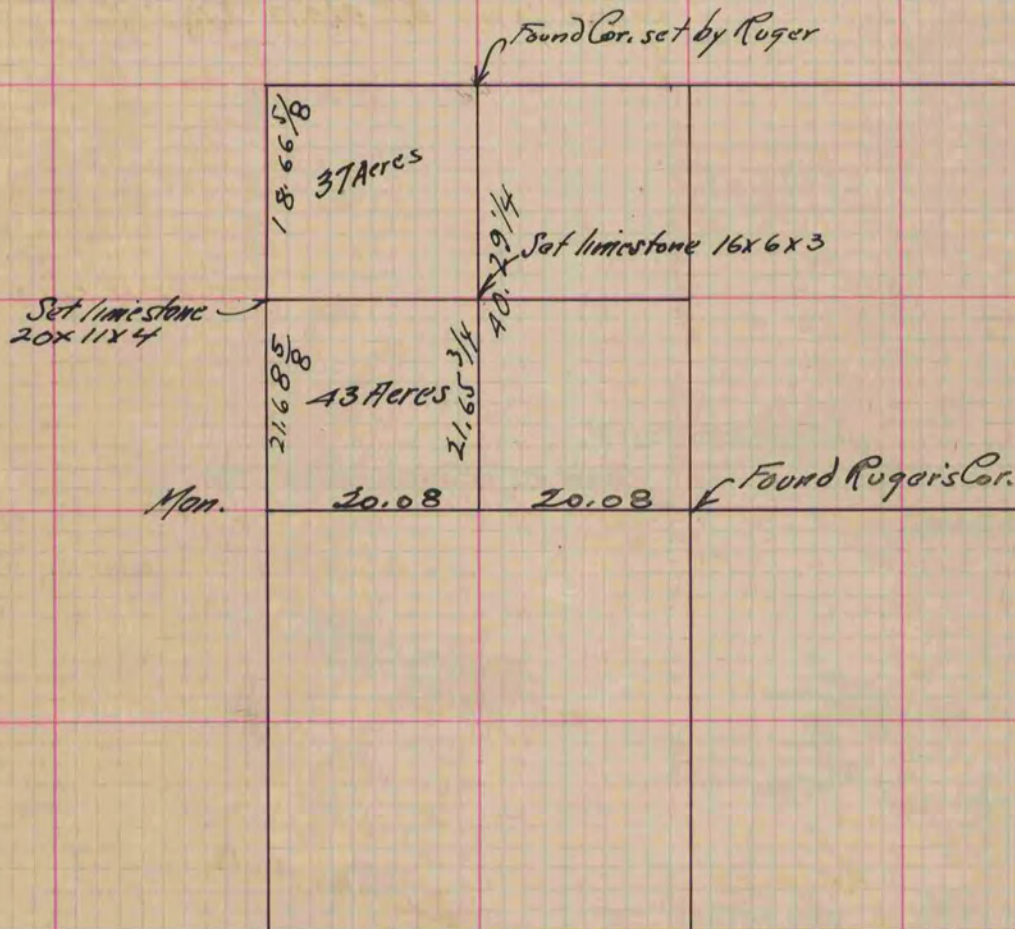 Found Cor. set by Ruger
18.66 5/8
37 Acres
40.29 1/4
Set limestone 16x6x3
Set limestone
20x11x4
21.68 5/8
43 Acres
21.65 3/4
Mon.
20.08
20.08
Found Ruger's Cor.